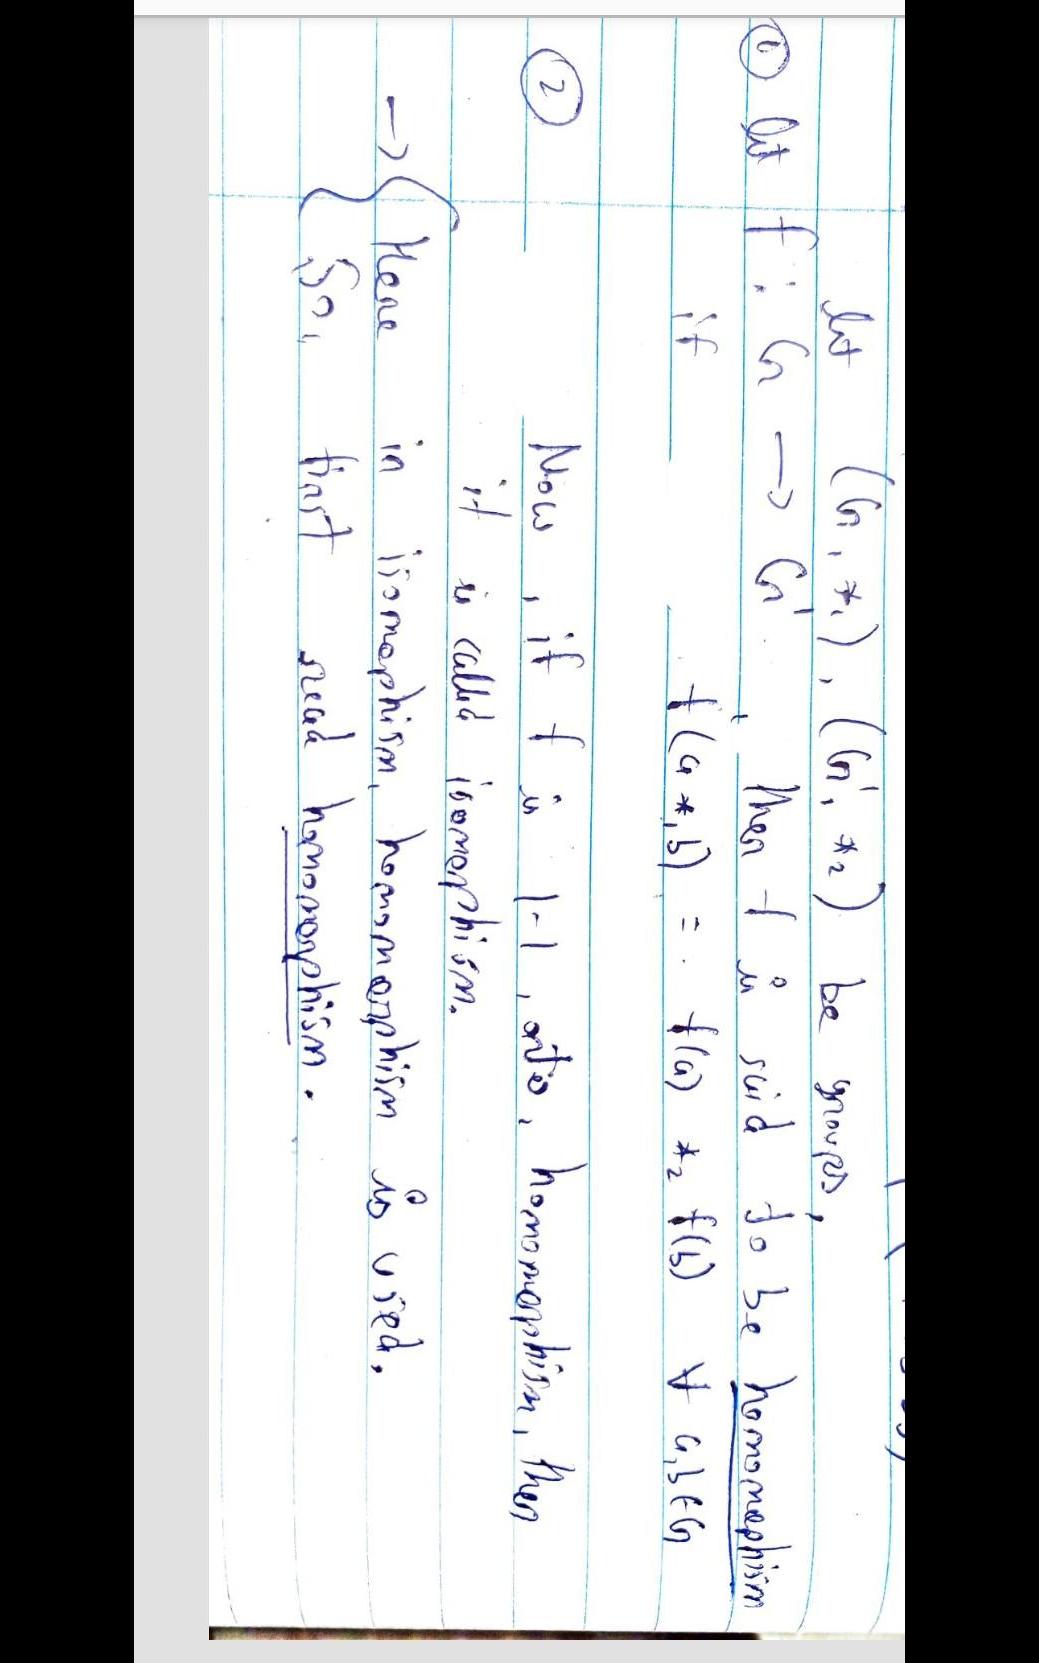 let (G, *₁), (G', *₂) be groups,
① let f : G → G'. then f is said to be homomorphism
if
f(a *₁ b) = f(a) *₂ f(b) ∀ a, b ∈ G
② Now, if f is 1-1, onto, homomorphism, then
it is called isomorphism.
→ { Here in isomorphism, homomorphism is used.
So, first read homomorphism.